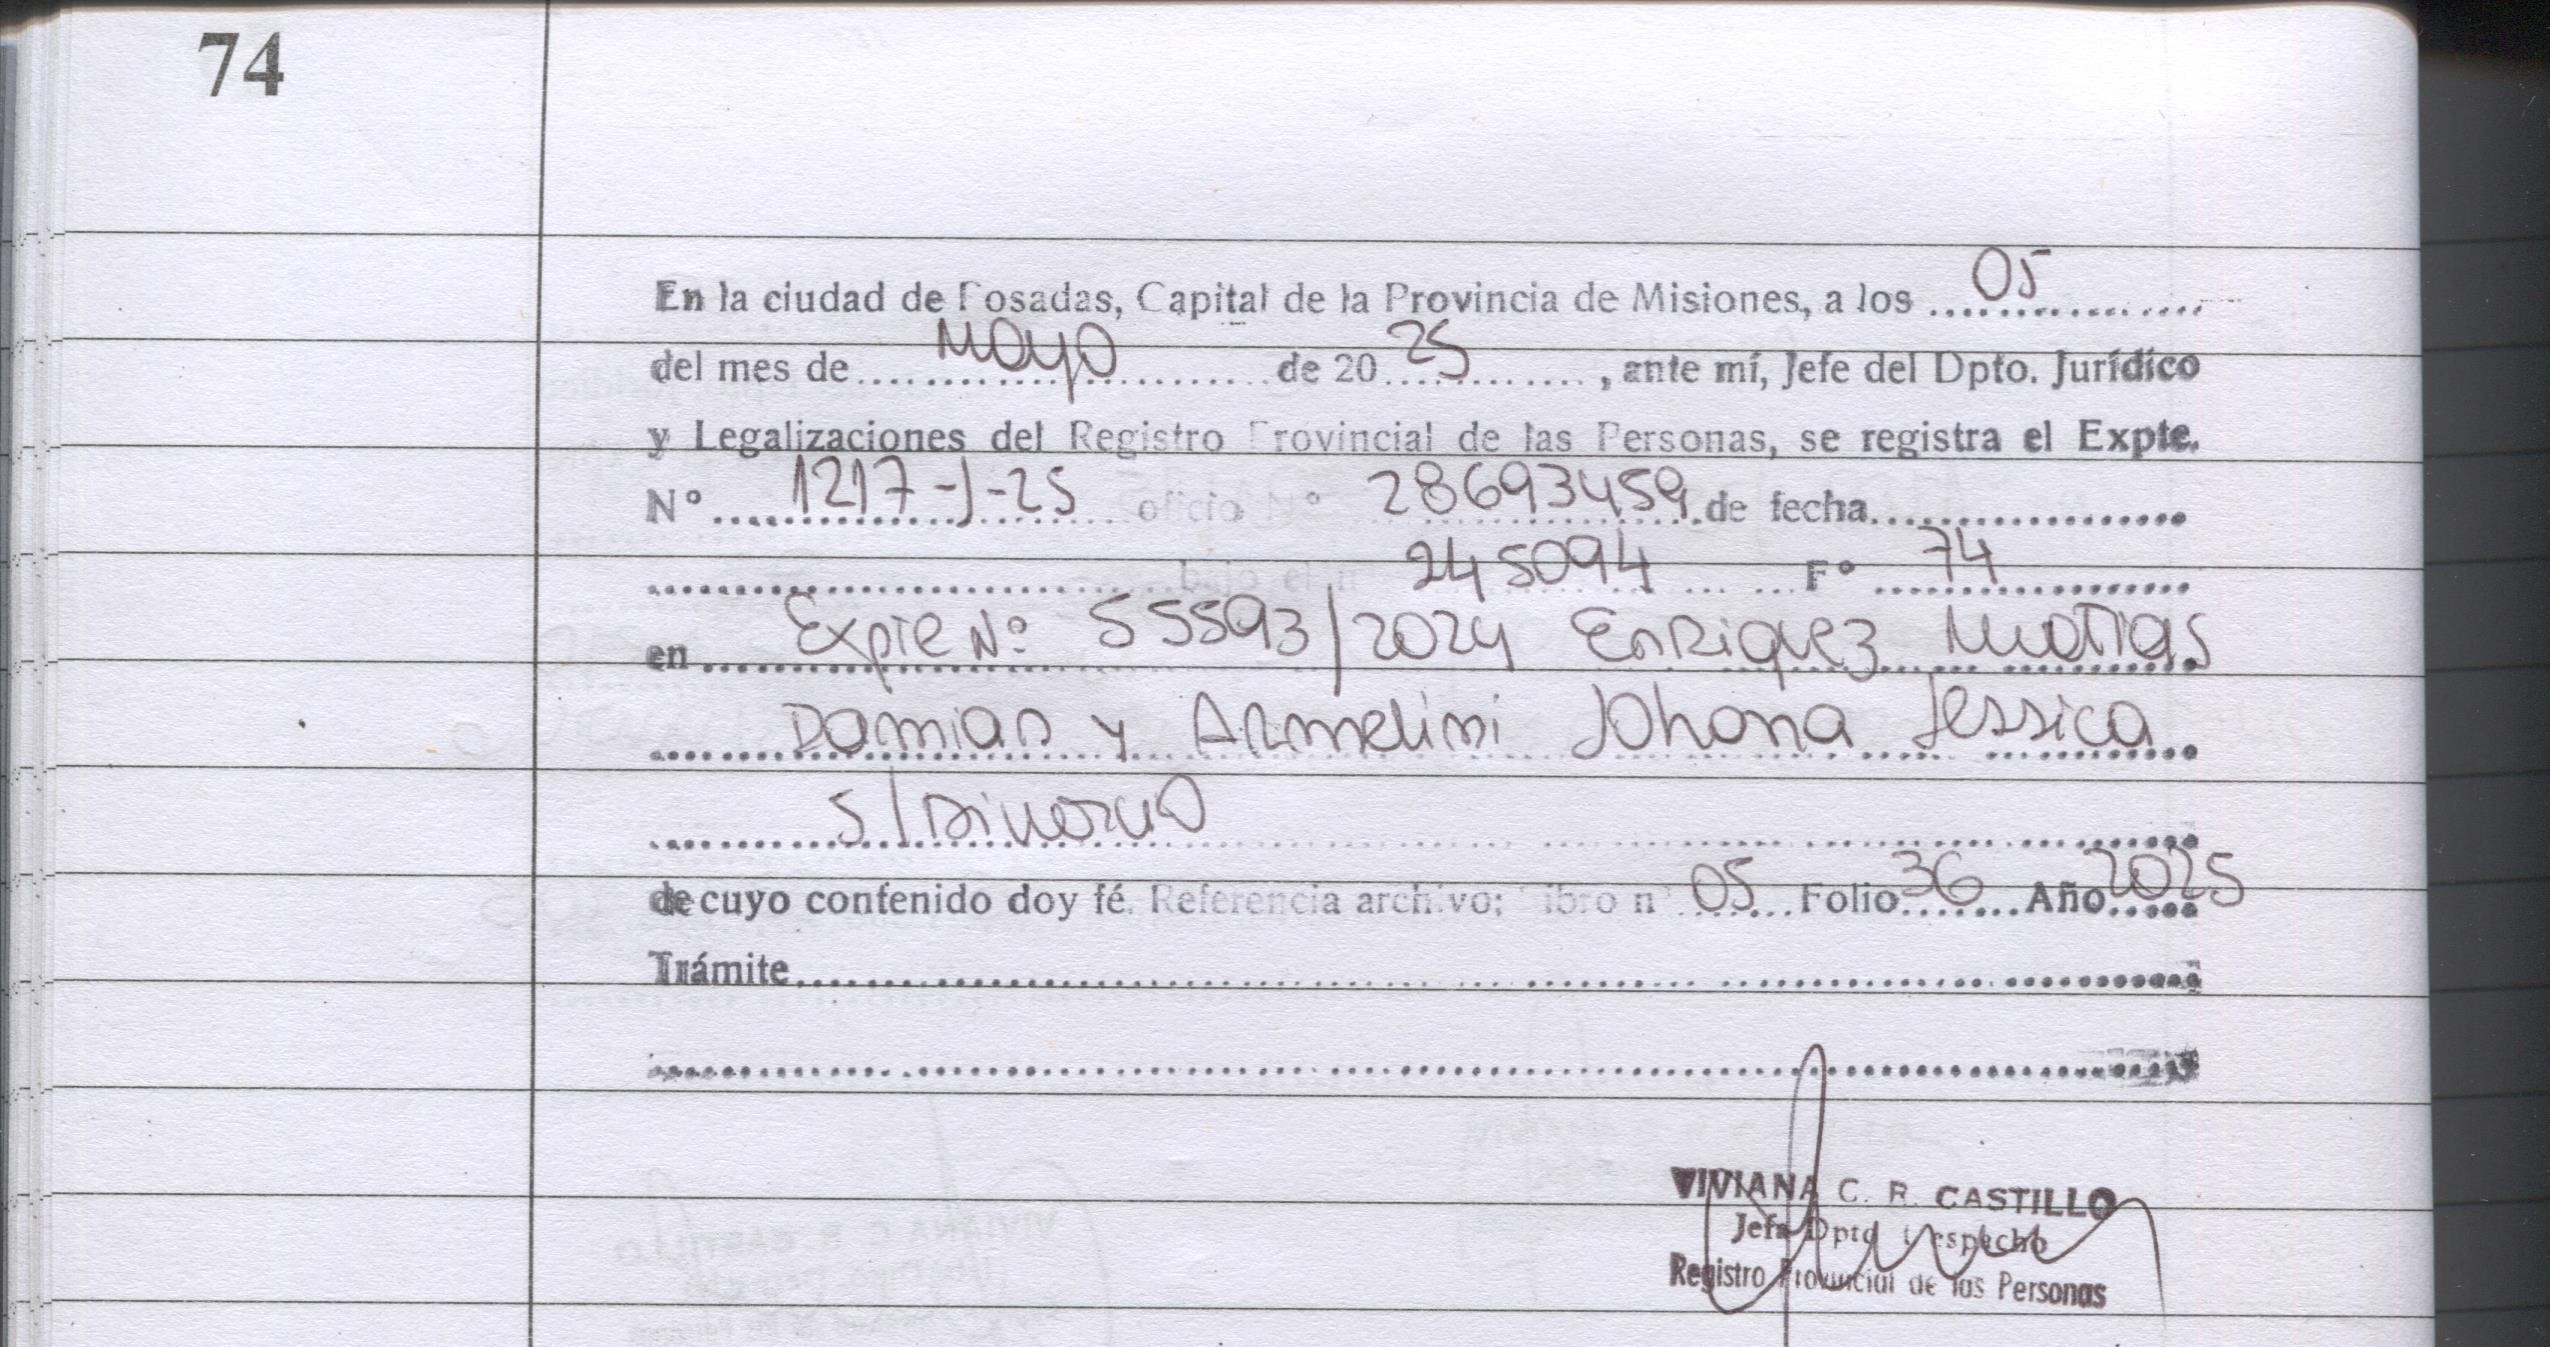 74
En la ciudad de Posadas, Capital de la Provincia de Misiones, a los 05
del mes de Mayo de 20 25, ante mí, Jefe del Dpto. Jurídico
y Legalizaciones del Registro Provincial de las Personas, se registra el Expte.
N° 1217-J-25 oficio N° 28693459 de fecha
bajo el n 245094 F° 74
en Expte Nº 55593/2024 Enriquez Matias
Damian y Armelini Johana Jessica
S/Divorcio
de cuyo contenido doy fé. Referencia archivo; Libro n° 05 Folio 36 Año 2025
Trámite
VIVIANA C. R. CASTILLO
Jefa Dpto Despacho
Registro Provincial de las Personas